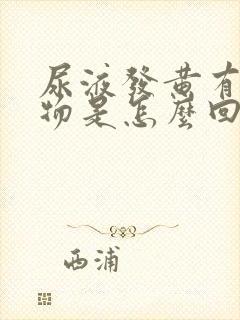 尿液發黃有
物是怎麼回
西浦